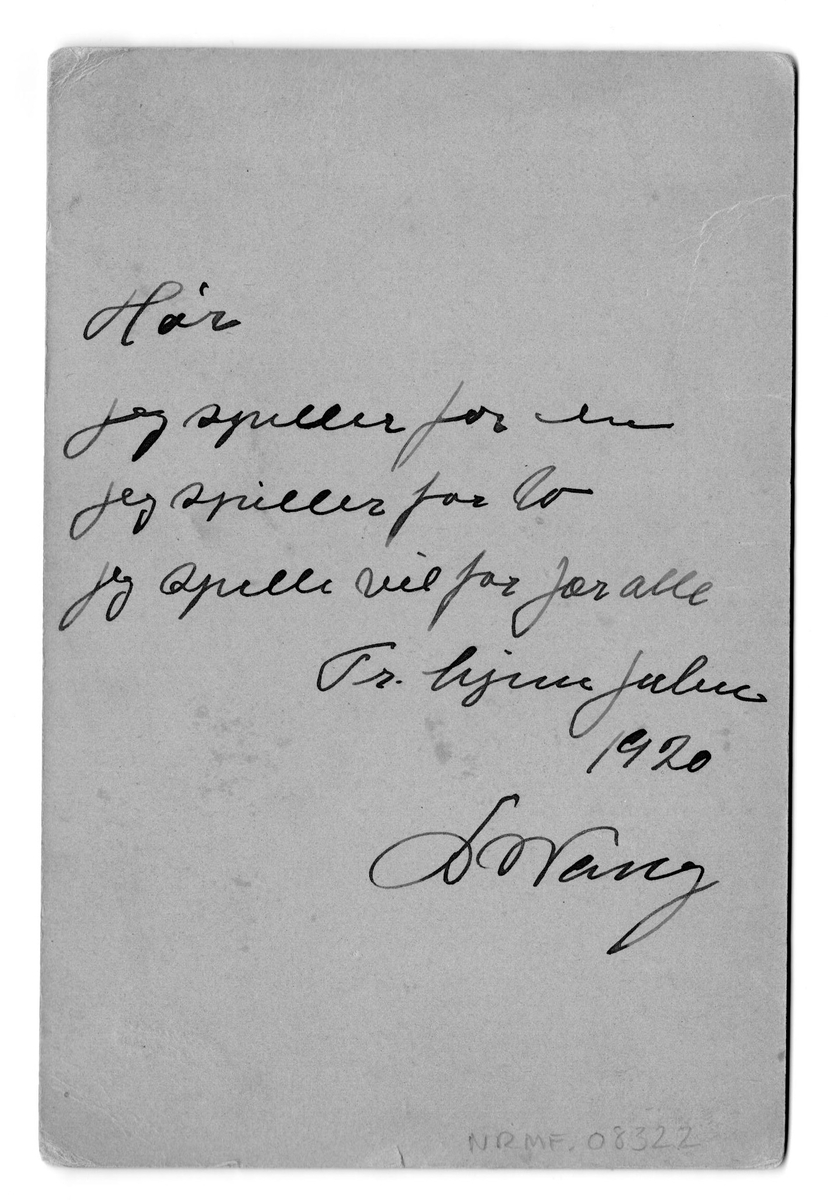 Hør
jeg spiller for en
jeg spiller for to
jeg spille vil for Jer alle
Tr.hjem Julen
1920
D Wang
NRMF. 08322